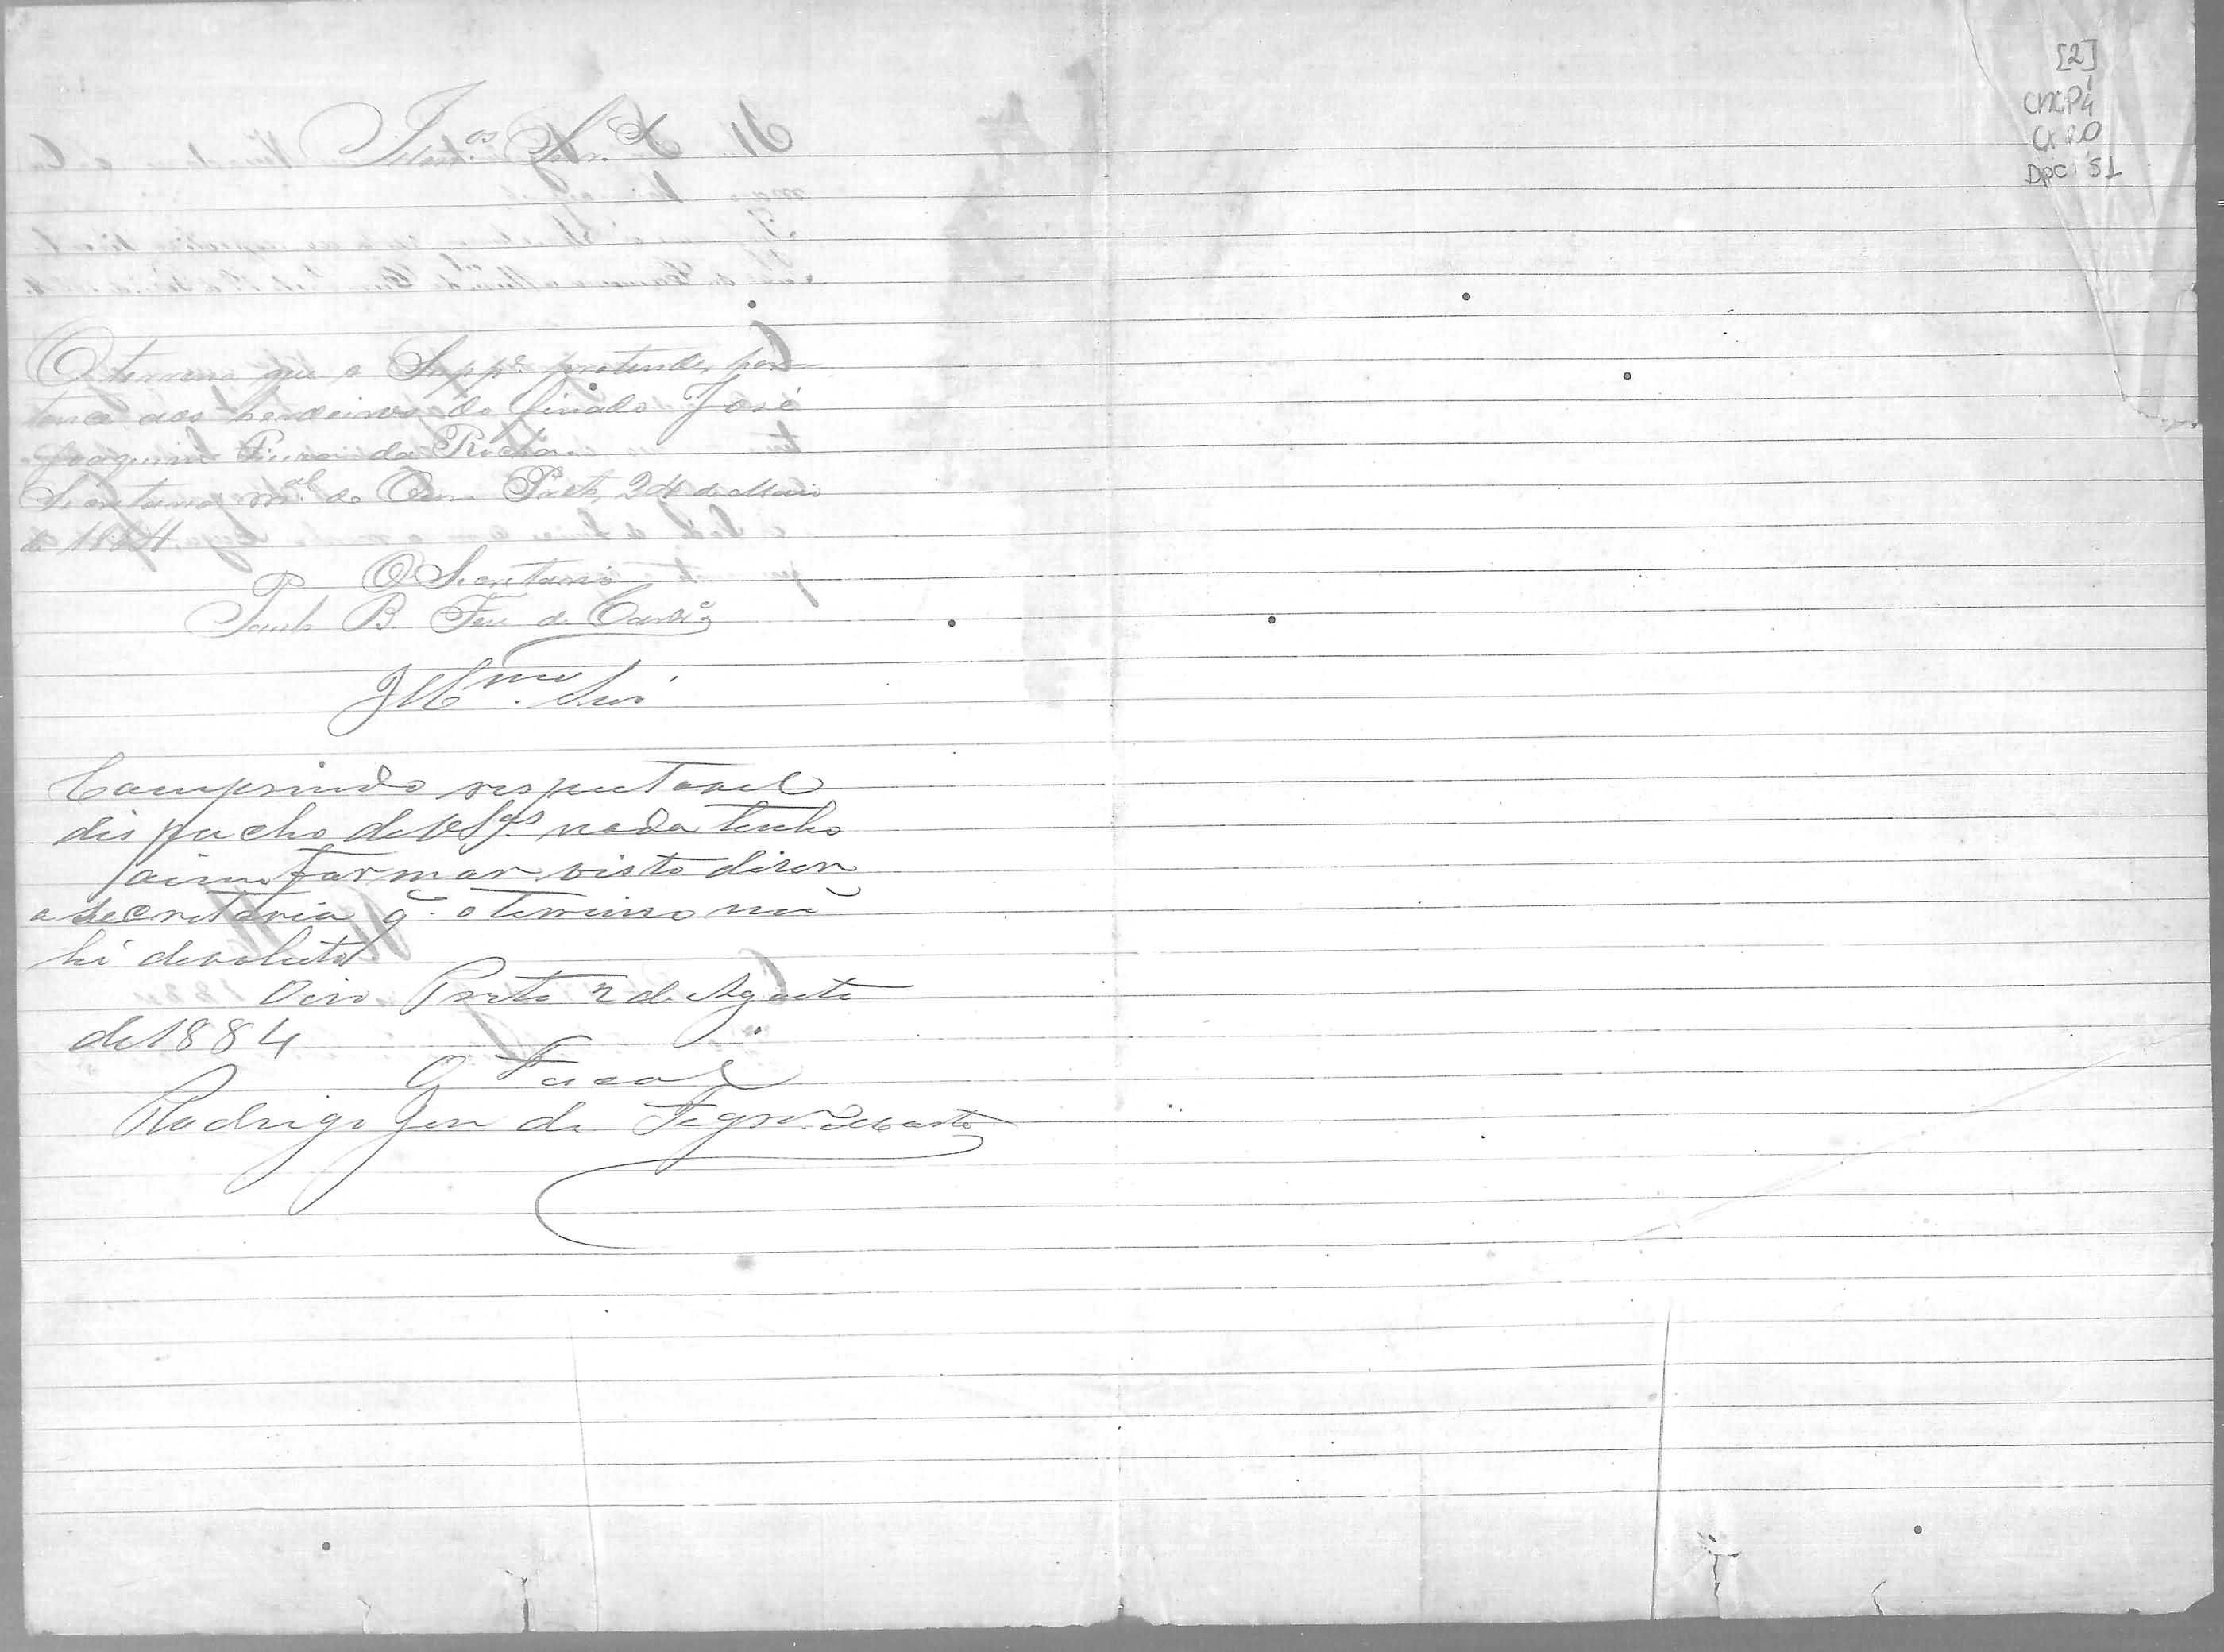 [2]
CMOP 1/4
Cx 20
Doc 51
Illm.os Snr.es
O terreno que o Supp.e pretende, per-
tence aos herdeiros do finado José
Joaquim da Rocha.
Secretaria m.al de Ouro Preto, 24 de Maio
de 1884.
O Secretario
Paulo B. Fer. de Carv.o
Ill.mo Snr
Comprindo respeitavel
dispacho de V. S.as nada tenho
a informar visto diser
a secretaria q. o terreno nã
hé devoluto
Oiro Preto 2 de Agosto
de 1884
O Fiscal
Rodrigo José de Figrd.o Murta